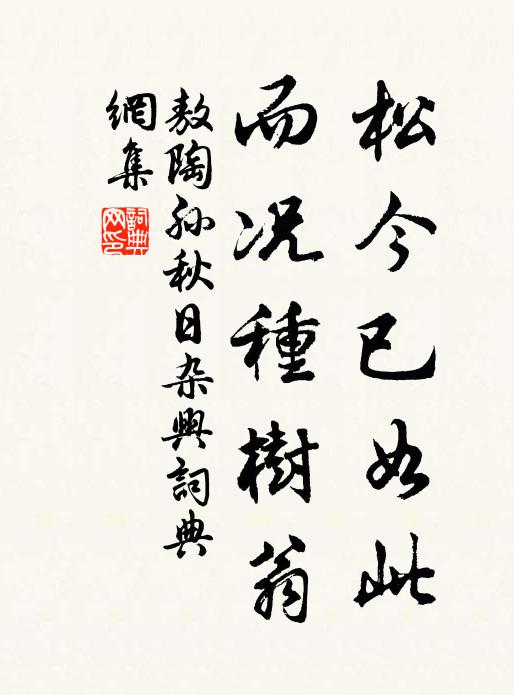 松今已如此
而况種樹翁
敖陶孙秋日杂興詞典
網集
詞典
网印